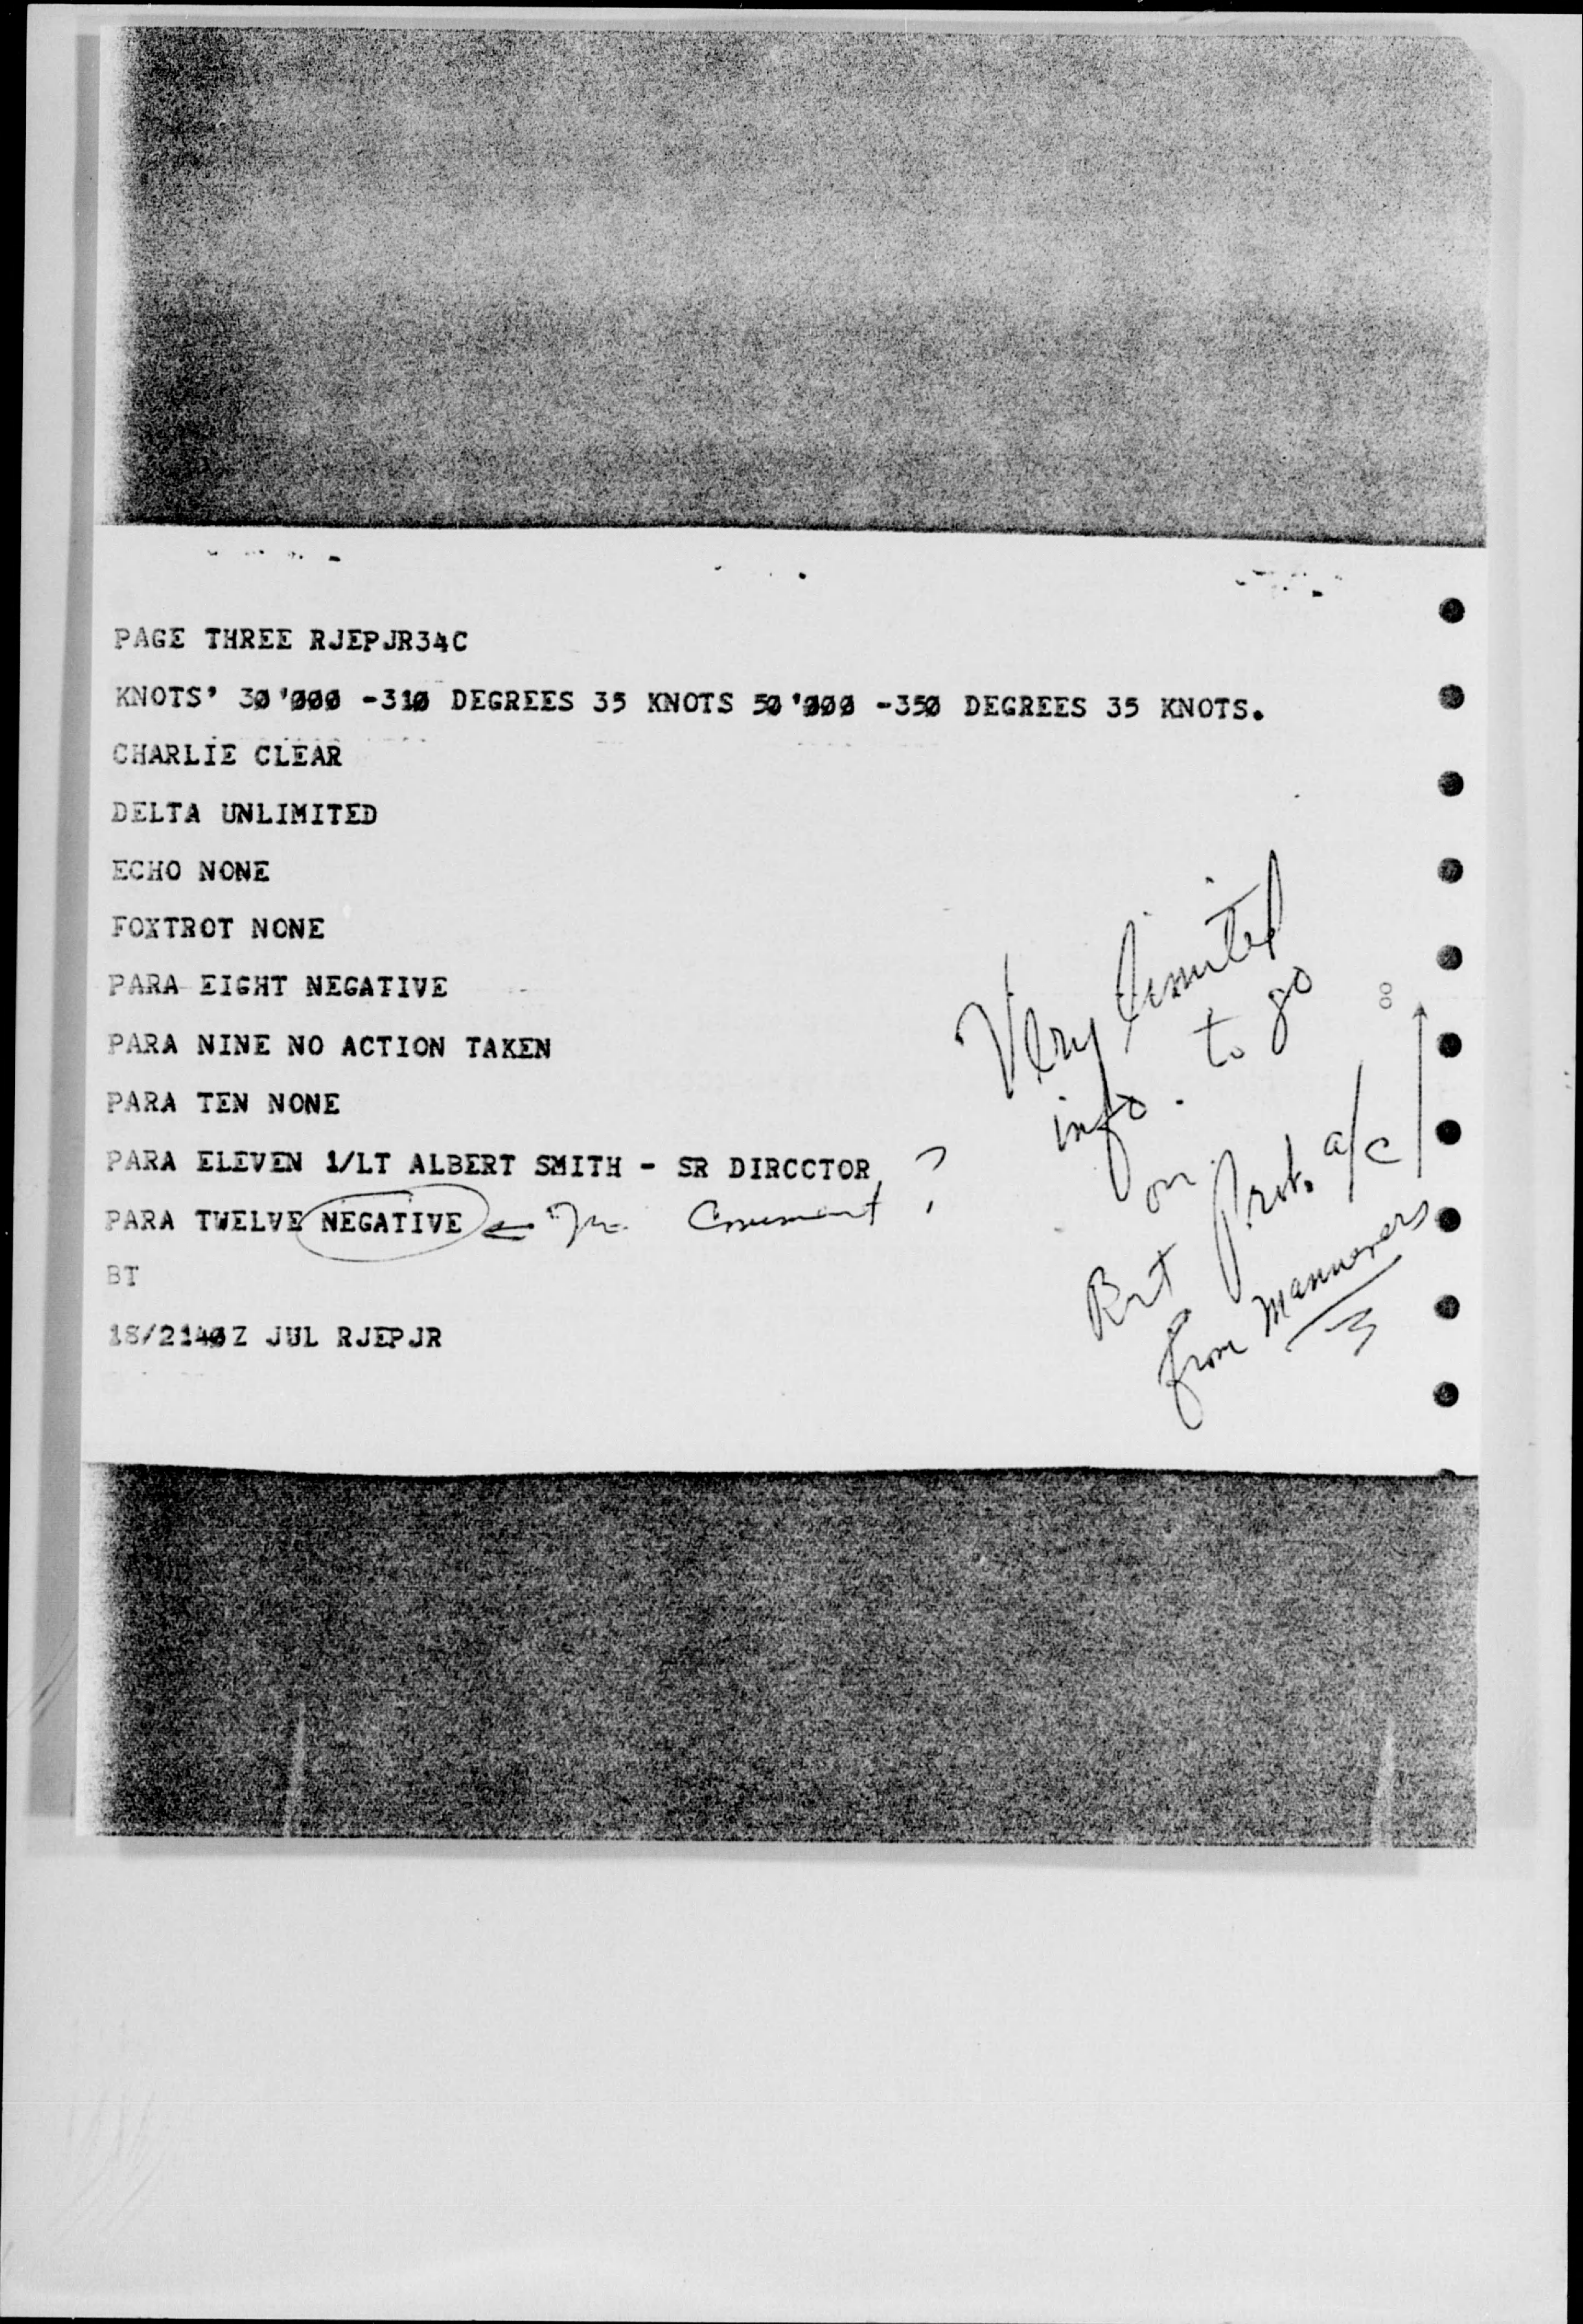 PAGE THREE RJEPJR34C
KNOTS' 30'000 -310 DEGREES 35 KNOTS 50'000 -350 DEGREES 35 KNOTS.
CHARLIE CLEAR
DELTA UNLIMITED
ECHO NONE
FOXTROT NONE
PARA EIGHT NEGATIVE
PARA NINE NO ACTION TAKEN
PARA TEN NONE
PARA ELEVEN 1/LT ALBERT SMITH - SR DIRCCTOR
PARA TWELVE NEGATIVE ← Comment ?
BT
18/2140Z JUL RJEPJR
Very limited
info. to go
on.
But Prob. a/c
from maneuvers